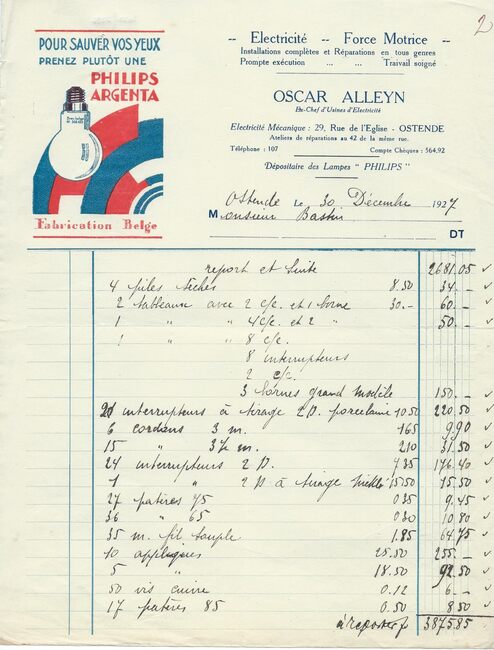 2
POUR SAUVER VOS YEUX
PRENEZ PLUTÔT UNE
PHILIPS
ARGENTA
Fabrication Belge
-- Electricité -- Force Motrice --
Installations complètes et Réparations en tous genres
Prompte exécution ... ... Traivail soigné
OSCAR ALLEYN
Ex-Chef d'Usines d'Electricité
Electricité Mécanique : 29, Rue de l'Eglise - OSTENDE
Ateliers de réparations au 42 de la même rue.
Téléphone : 107 Compte Chèques : 564,92
Dépositaire des Lampes " PHILIPS "
Ostende Le 30 Décembre 1927
Monsieur Bastin
DT
report et suite 2681.05
4 piles sèches 8.50 34.-
2 tableaux avec 2 c/c. et 1 borne 30.- 60.-
1 " " 4 c/c. et 2 " 50.-
1 " " 8 c/c.
8 interrupteurs
2 c/c.
3 bornes grand modèle 150.-
21 interrupteurs à tirage 2 D. porcelaine 10.50 220.50
6 cordons 3 m. 1.65 9.90
15 " 3½ m. 2.10 31.50
24 interrupteurs 2 D. 7.35 176.40
1 " 2 D à tirage 15.50 15.50
27 patères 75 0.35 9.45
36 " 65 0.30 10.80
35 m. fil souple 1.85 64.75
10 appliques 25.50 255.-
5 " 18.50 92.50
50 vis cuivre 0.12 6.-
17 patères 85 0.50 8.50
à reporter f 3875.85